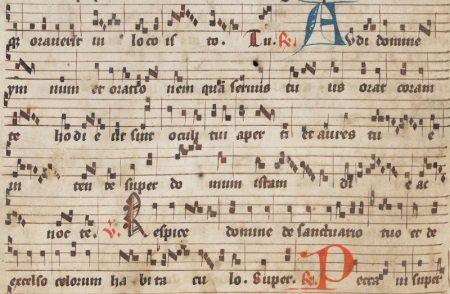 orauerit in loco is to. Tu. R. Audi domine
ym num et oratio nem quā seruus tu us orat coram
te ho di e ut sint oculi tui aper ti et aures tu e
in ten te super do mum istam di e ac
noc te. V. Respice domine de sanctuario tuo et de
excelso celorum ha bita cu lo. Super. R. Pecca ui super